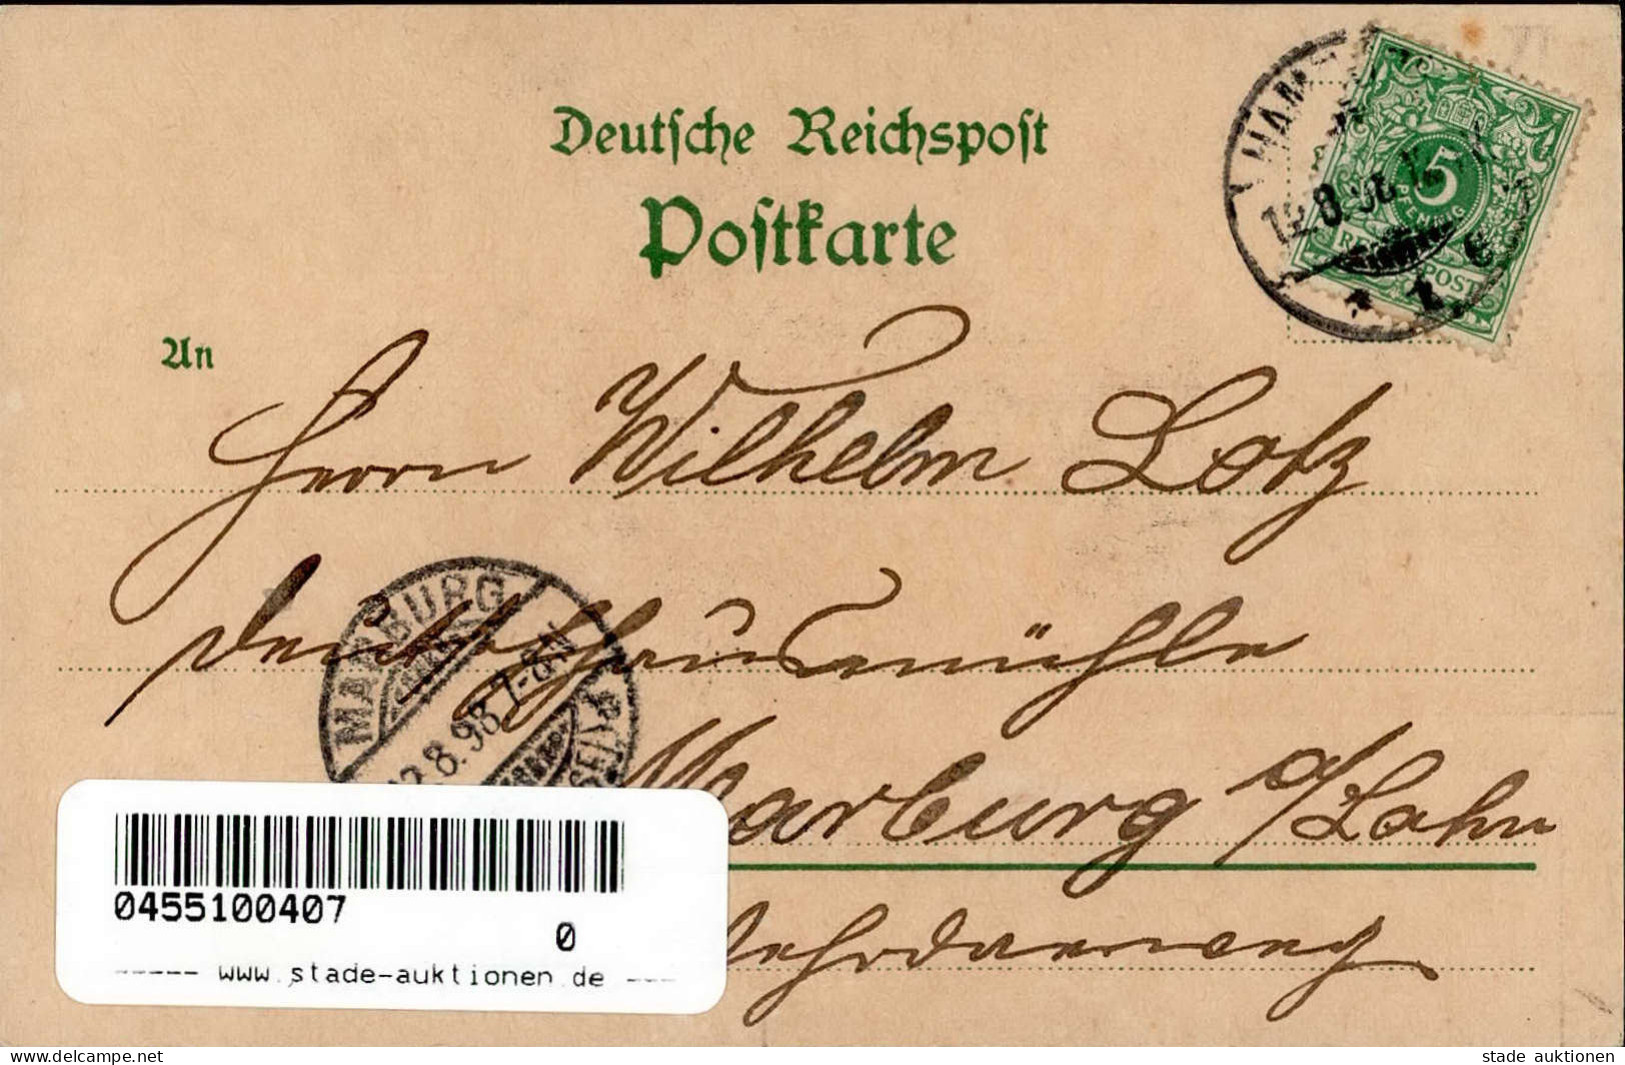 Deutsche Reichspost
Postkarte
5
PFENNIG
REICHSPOST
12.8.98.
An
Herrn Wilhelm Lotz
Deutschhausmühle
MARBURG
12.8.98. 7-8N
Marburg a/Lahn
0455100407
0
----- www.stade-auktionen.de ---
www.delcampe.net
stade auktionen